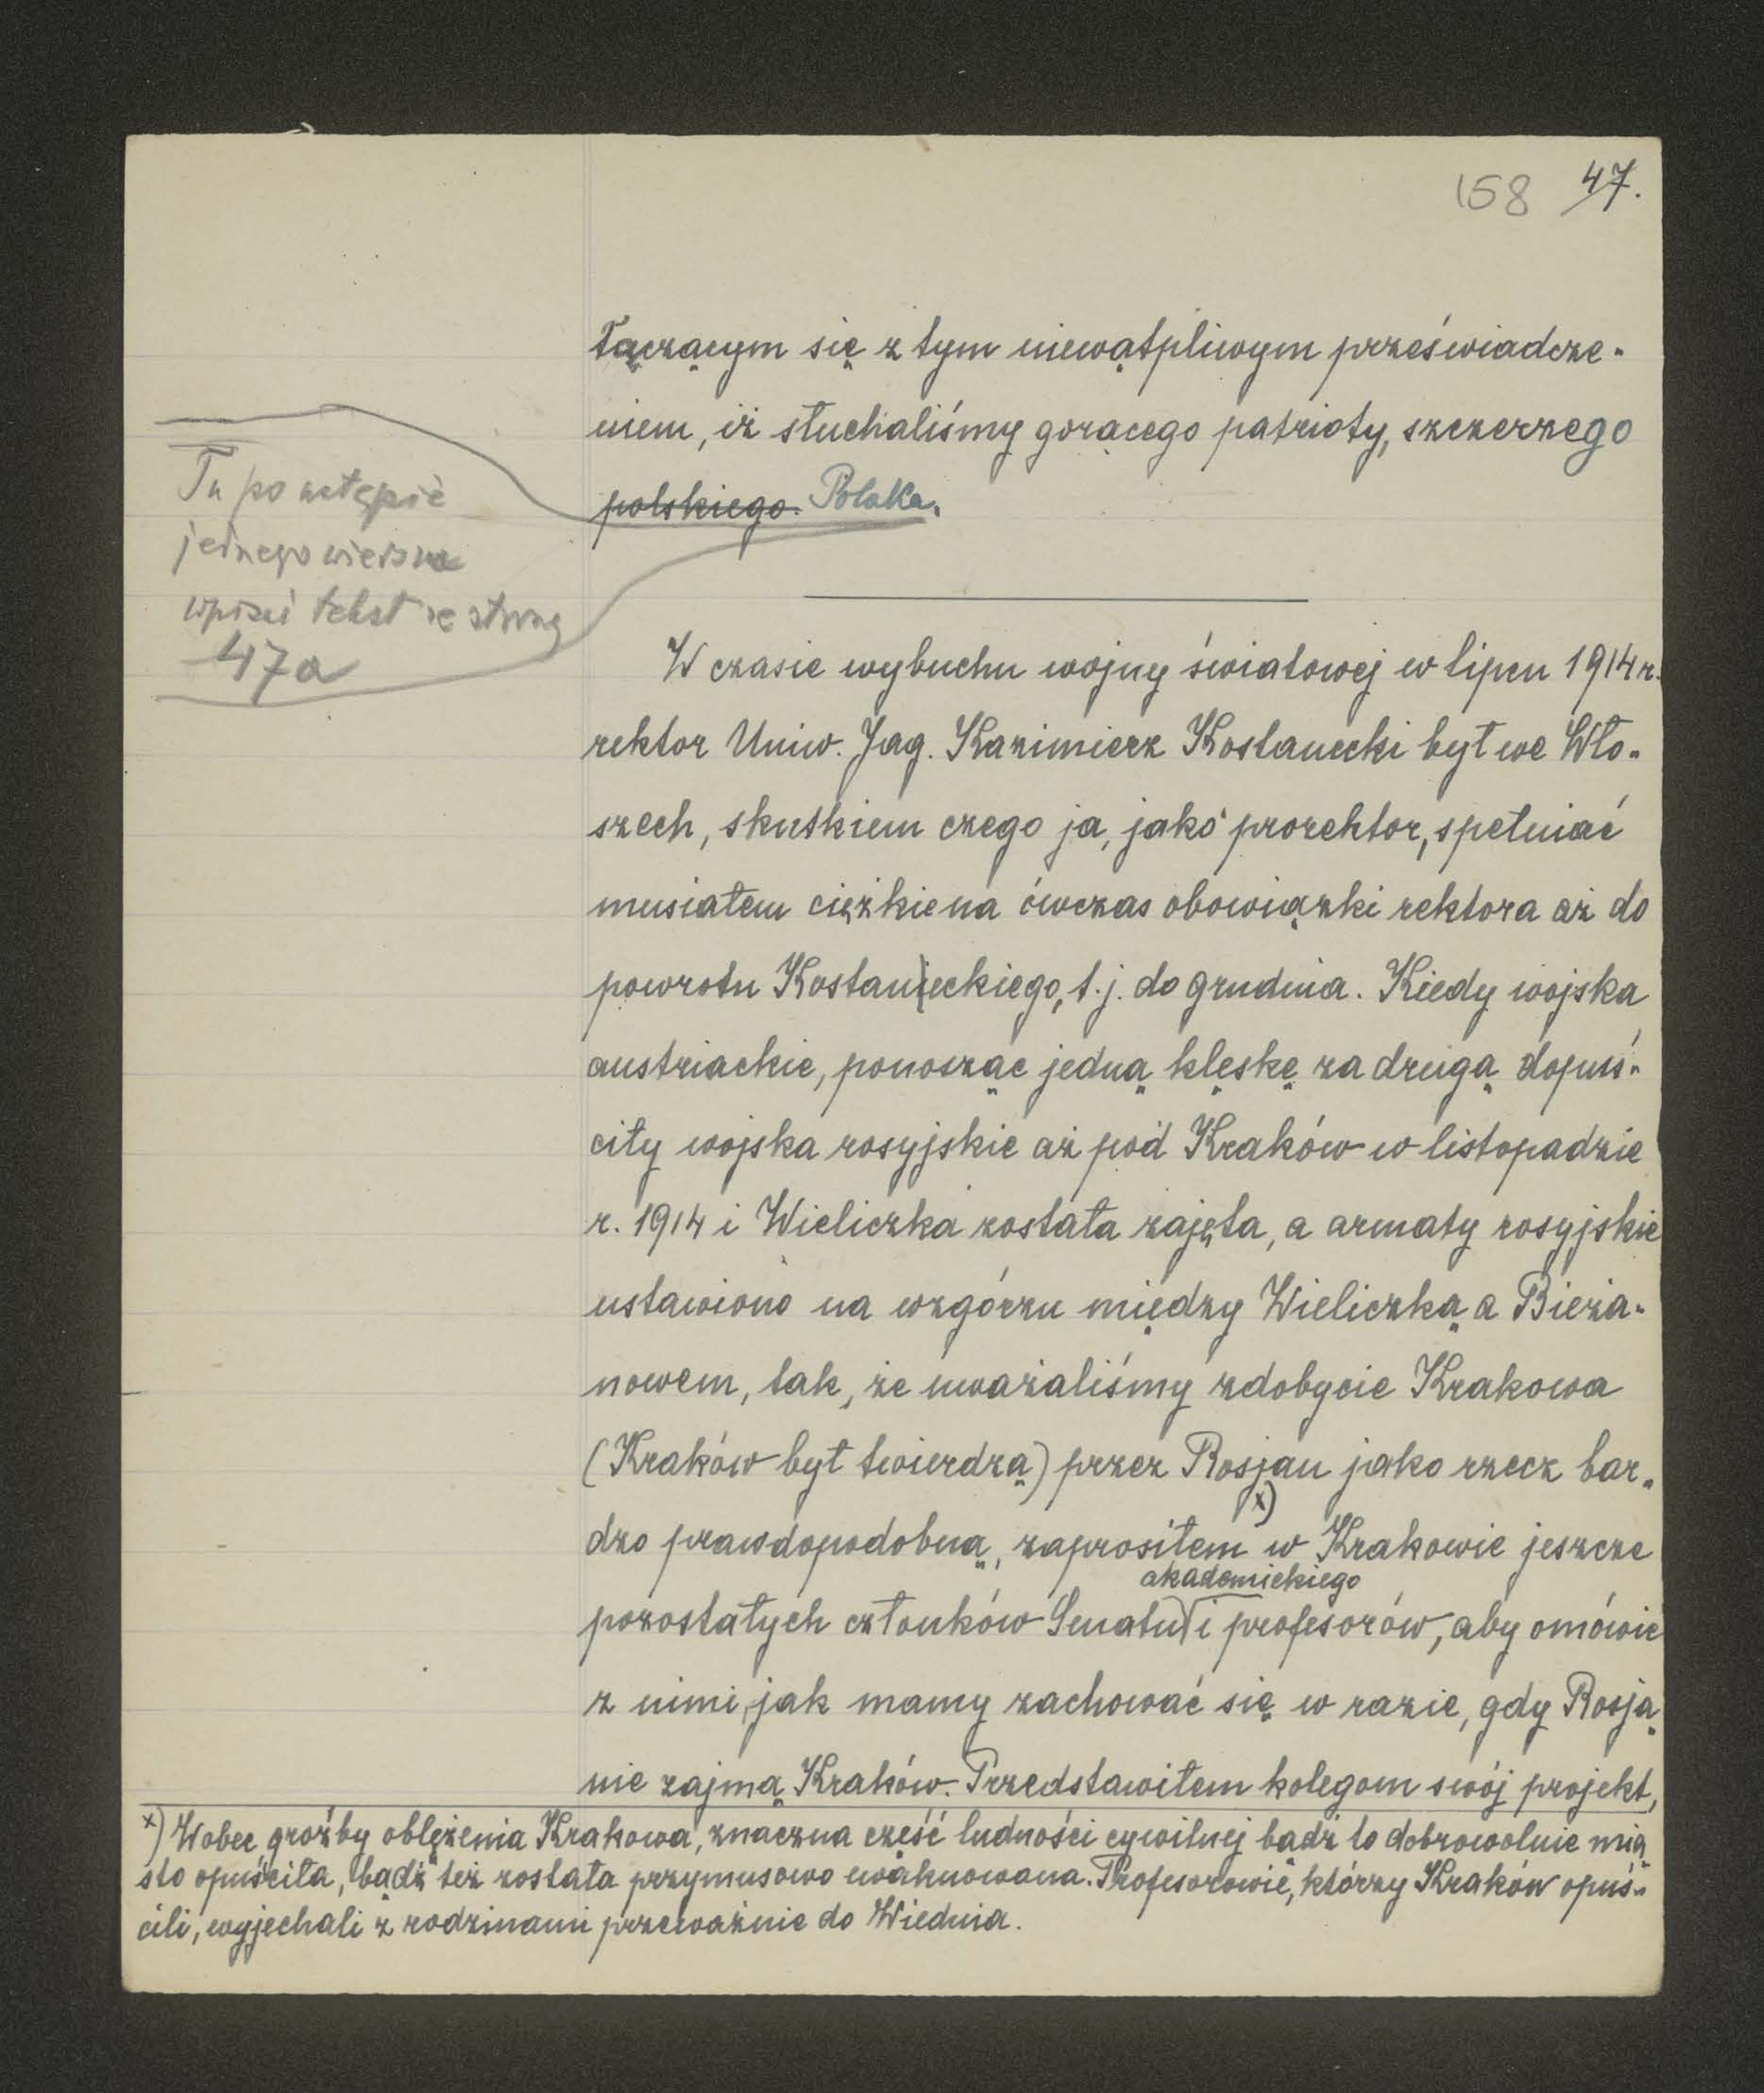 158 47.
łączącym się z tym niewątpliwym przeświadcze-
niem, iż słuchaliśmy gorącego patrioty, szczerzego
polskiego. Polaka.
Tu po ustępie
jednego wiersza
wpisać tekst ze strony
47a
W czasie wybuchu wojny światowej w lipcu 1914 r.
rektor Uniw. Jag. Kazimierz Kostanecki był we Wło-
szech, skutkiem czego ja, jako prorektor, spełniać
musiałem ciężkie na ówczas obowiązki rektora aż do
powrotu Kostaneckiego, t.j. do grudnia. Kiedy wojska
austriackie, ponosząc jedną klęskę za drugą dopuś-
ciły wojska rosyjskie aż pod Kraków w listopadzie
r. 1914 i Wieliczka została zajęta, a armaty rosyjskie
ustawiono na wzgórzu między Wieliczką a Bieża-
nowem, tak, że uważaliśmy zdobycie Krakowa
(Kraków był twierdzą) przez Rosjan jako rzecz bar-
dzo prawdopodobną, zaprosiłem x) w Krakowie jeszcze
akademickiego
pozostałych członków Senatu i profesorów, aby omówić
z nimi, jak mamy zachować się w razie, gdy Rosja-
nie zajmą Kraków. Przedstawiłem kolegom swój projekt,
x) Wobec groźby oblężenia Krakowa, znaczna część ludności cywilnej bądź to dobrowolnie mia-
sto opuściła, bądź też została przymusowo ewakuowana. Profesorowie, którzy Kraków opuś-
cili, wyjechali z rodzinami przeważnie do Wiednia.